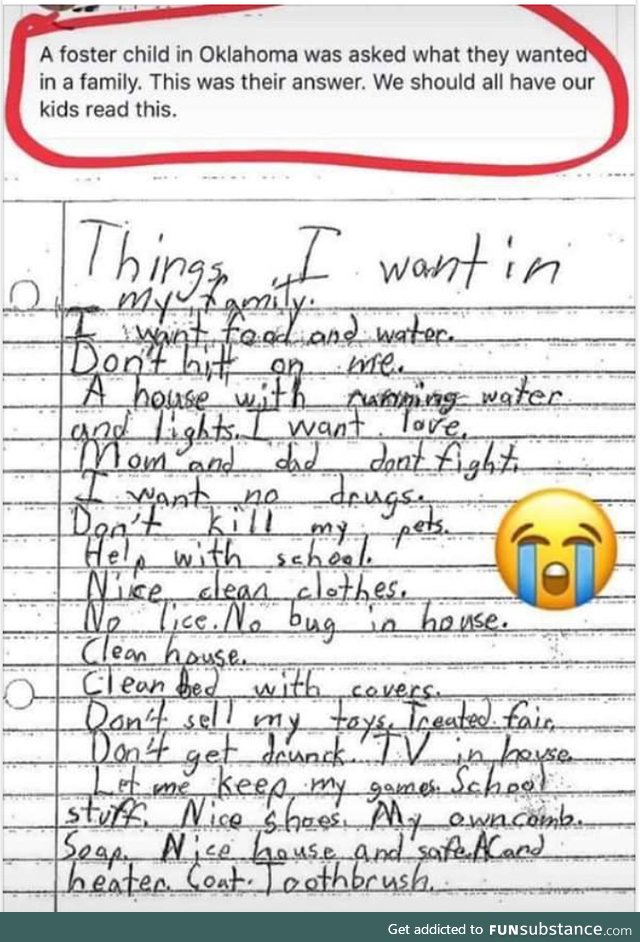 A foster child in Oklahoma was asked what they wanted
in a family. This was their answer. We should all have our
kids read this.
Things I want in
my family.
I want food and water.
Don't hitt on me.
A house with running water
and lights. I want love.
Mom and dad dont fight.
I want no drugs.
Don't kill my pets.
Help with school.
Nice clean clothes.
No lice. No bug in house.
Clean house.
Clean bed with covers.
Don't sell my toys. Treated fair.
Don't get drunck. TV in house.
Let me keep my games. School
stuff. Nice shoes. My own comb.
Soap. Nice house and safe. AC and
heater. Coat. Toothbrush.
Get addicted to FUNsubstance.com